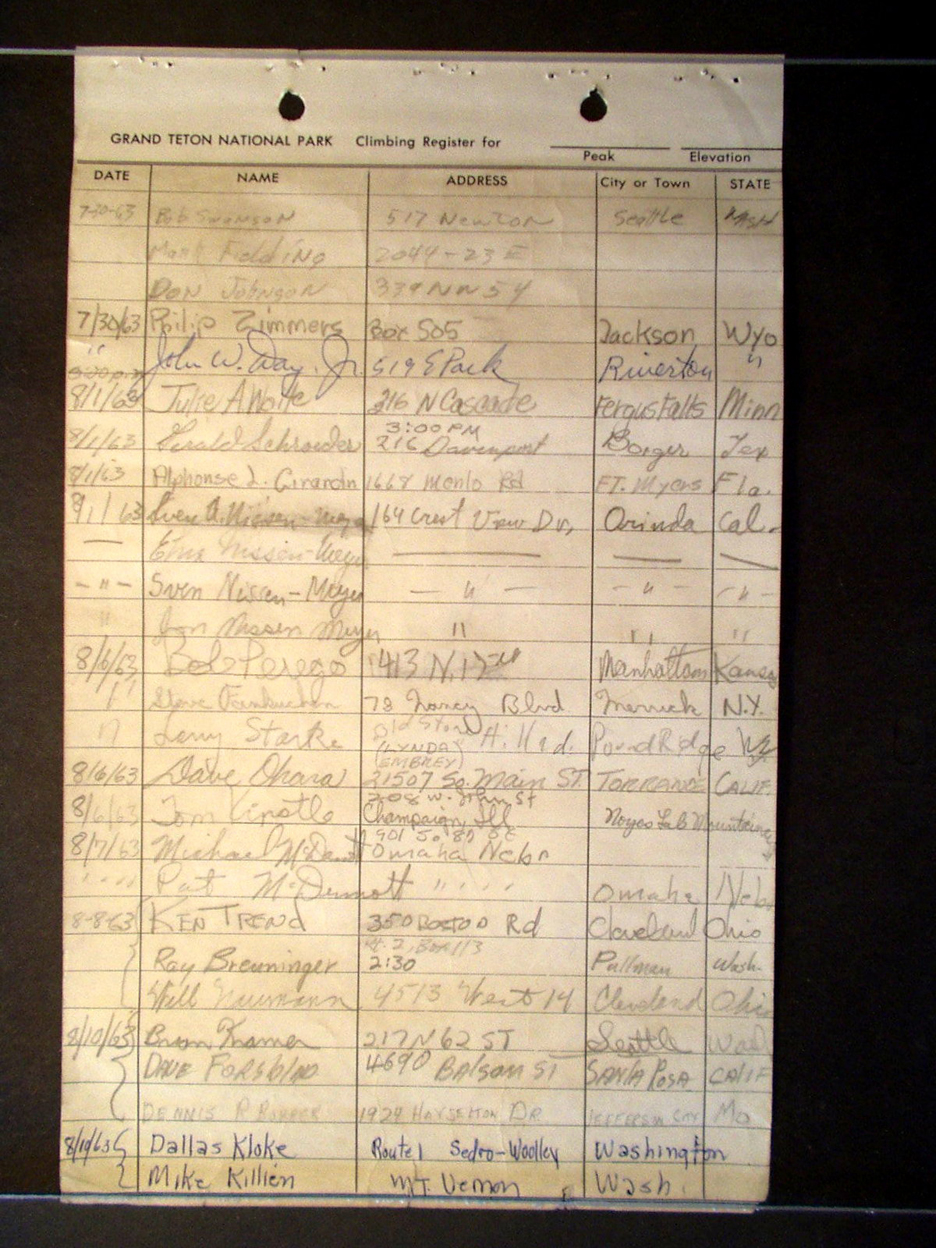 GRAND TETON NATIONAL PARK Climbing Register for
Peak Elevation
DATE NAME ADDRESS City or Town STATE
7-30-63 Bob Swanson 517 Newton Seattle Wash
Mark Fielding 2044-23 E
Don Johnson 339 NW 54
7/30/63 Philip Zimmers Box 505 Jackson Wyo
" John W. Day, Jr. 519 E Park Riverton "
8/1/63 Julie A 216 N Cascade Fergus Falls Minn
3:00 PM
8/1/63 Gerald Schroeder 216 Davenport Borger Tex
8/1/63 Alphonse L. Girardin 1668 Menlo Rd FT. Myers Fla.
8/1/63 Sven A. Nissen-Meyer 164 Crest View Dr, Orinda Cal.
— Nissen-Meyer — — —
- " - Sven Nissen-Meyer - " - - " - - " -
" Jon Nissen Meyer " " "
8/6/63 Bob Perego 413 N. 17th Manhattan Kansas
" Steve 78 Nancy Blvd Merrick N.Y.
" Larry Starke Old Stone H. Rd. Pound Ridge NY
(LYNDA EMBREY)
8/6/63 Dave Ohara 21507 So. Main ST. TORRANCE CALIF.
208 W. John St
8/6/63 Tom Kinstle Champaign, Ill Noyes Lab Mountaineers
901 So. 89 St
8/7/63 Michael McDermott Omaha Nebr
" " " " Pat McDermott " " " " Omaha Neb.
8-8-63 KEN TREND 350 Rd Cleveland Ohio
Rt. 2, Box 113
Ray Breuninger 2:30 Pullman Wash.
Will Neumann 4513 West 14 Cleveland Ohio
8/10/63 Kramer 217 N 62 ST Seattle Wash
DAVE FORSBLAD 4690 Balsom ST SANTA ROSA CALIF
DENNIS R 1924 HAYSELTON DR. JEFFERSON CITY Mo
8/10/63 Dallas Kloke Route 1 Sedro-Woolley Washington
Mike Killien MT. Vernon Wash.